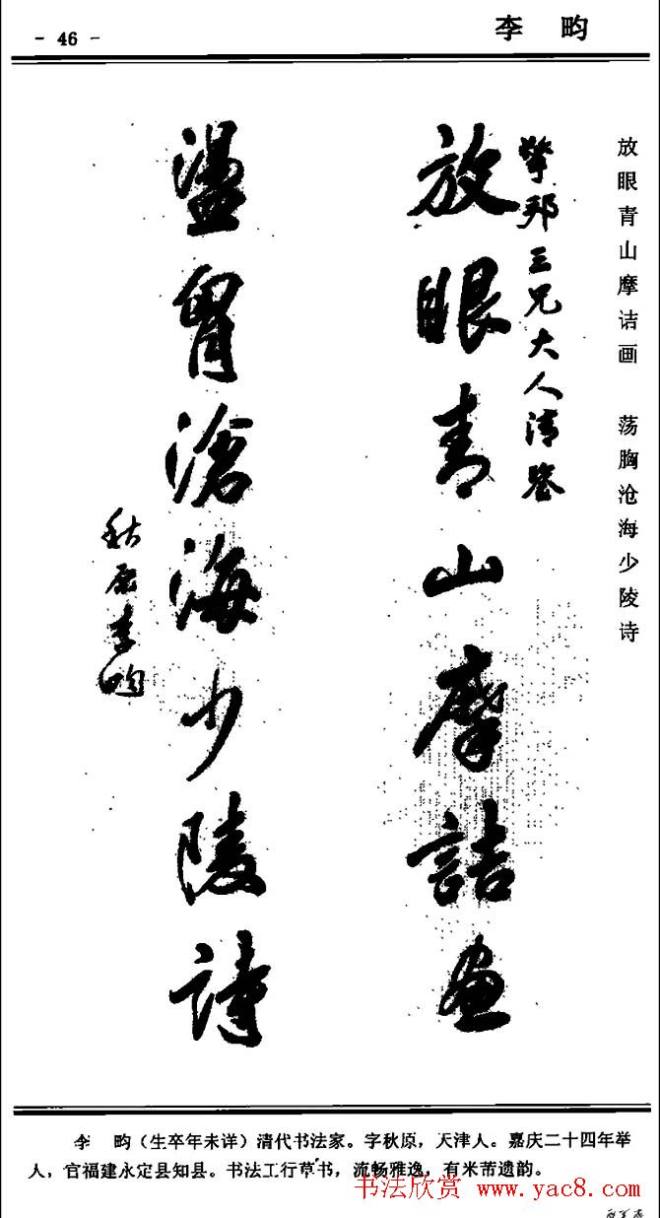 - 46 -
李 畇
放眼青山摩诘画 荡胸沧海少陵诗
邦三兄大人清鑒
放眼青山摩詰畫
盪胷滄海少陵詩
秋原李畇
李 畇（生卒年未详）清代书法家。字秋原，天津人。嘉庆二十四年举
人，官福建永定县知县。书法工行草书，流畅雅逸，有米芾遗韵。
书法欣赏 www.yac8.com